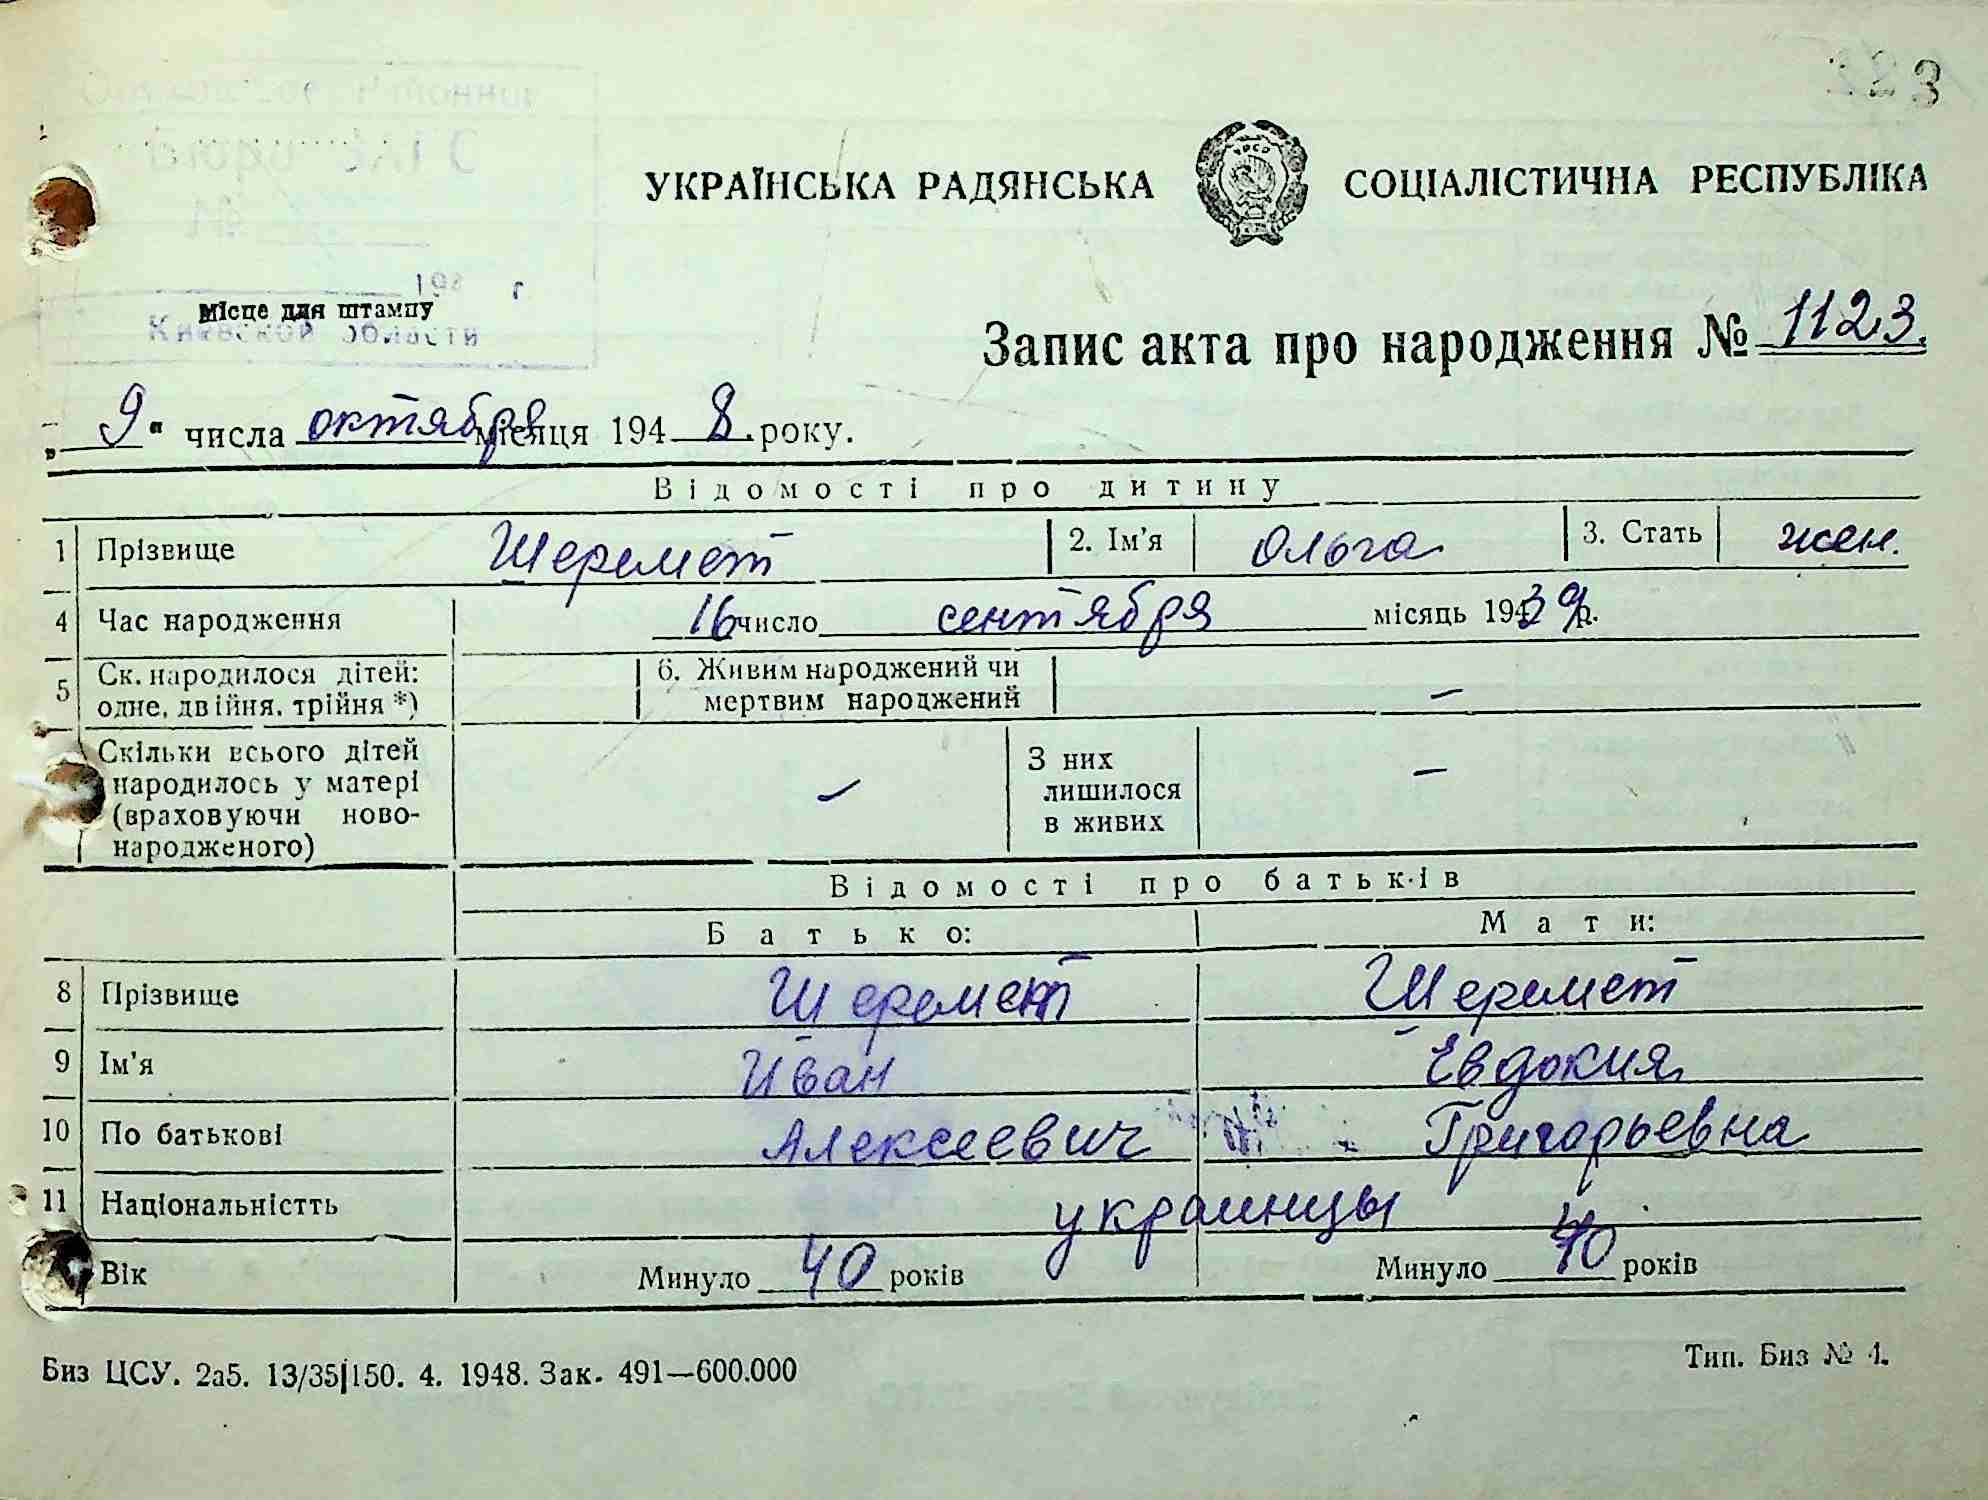 223
УКРАЇНСЬКА РАДЯНСЬКА СОЦІАЛІСТИЧНА РЕСПУБЛІКА
198 г
Місце для штампу
Киевской области
Запис акта про народження № 1123.
„9" числа октября місяця 1948 року.
Відомості про дитину
1 Прізвище Шеремет 2. Ім'я Ольга 3. Стать жен.
4 Час народження 16 число сентября місяць 1939 р.
5 Ск. народилося дітей: одне, двійня, трійня *) 6. Живим народжений чи мертвим народжений –
Скільки всього дітей народилось у матері (враховуючи новонародженого) – З них лишилося в живих –
Відомості про батьків
Батько: Мати:
8 Прізвище Шеремет Шеремет
9 Ім'я Иван Евдокия
10 По батькові Алексеевич Григорьевна
11 Національністть украинцы
Вік Минуло 40 років Минуло 40 років
Биз ЦСУ. 2а5. 13/35|150. 4. 1948. Зак. 491—600.000
Тип. Биз № 4.